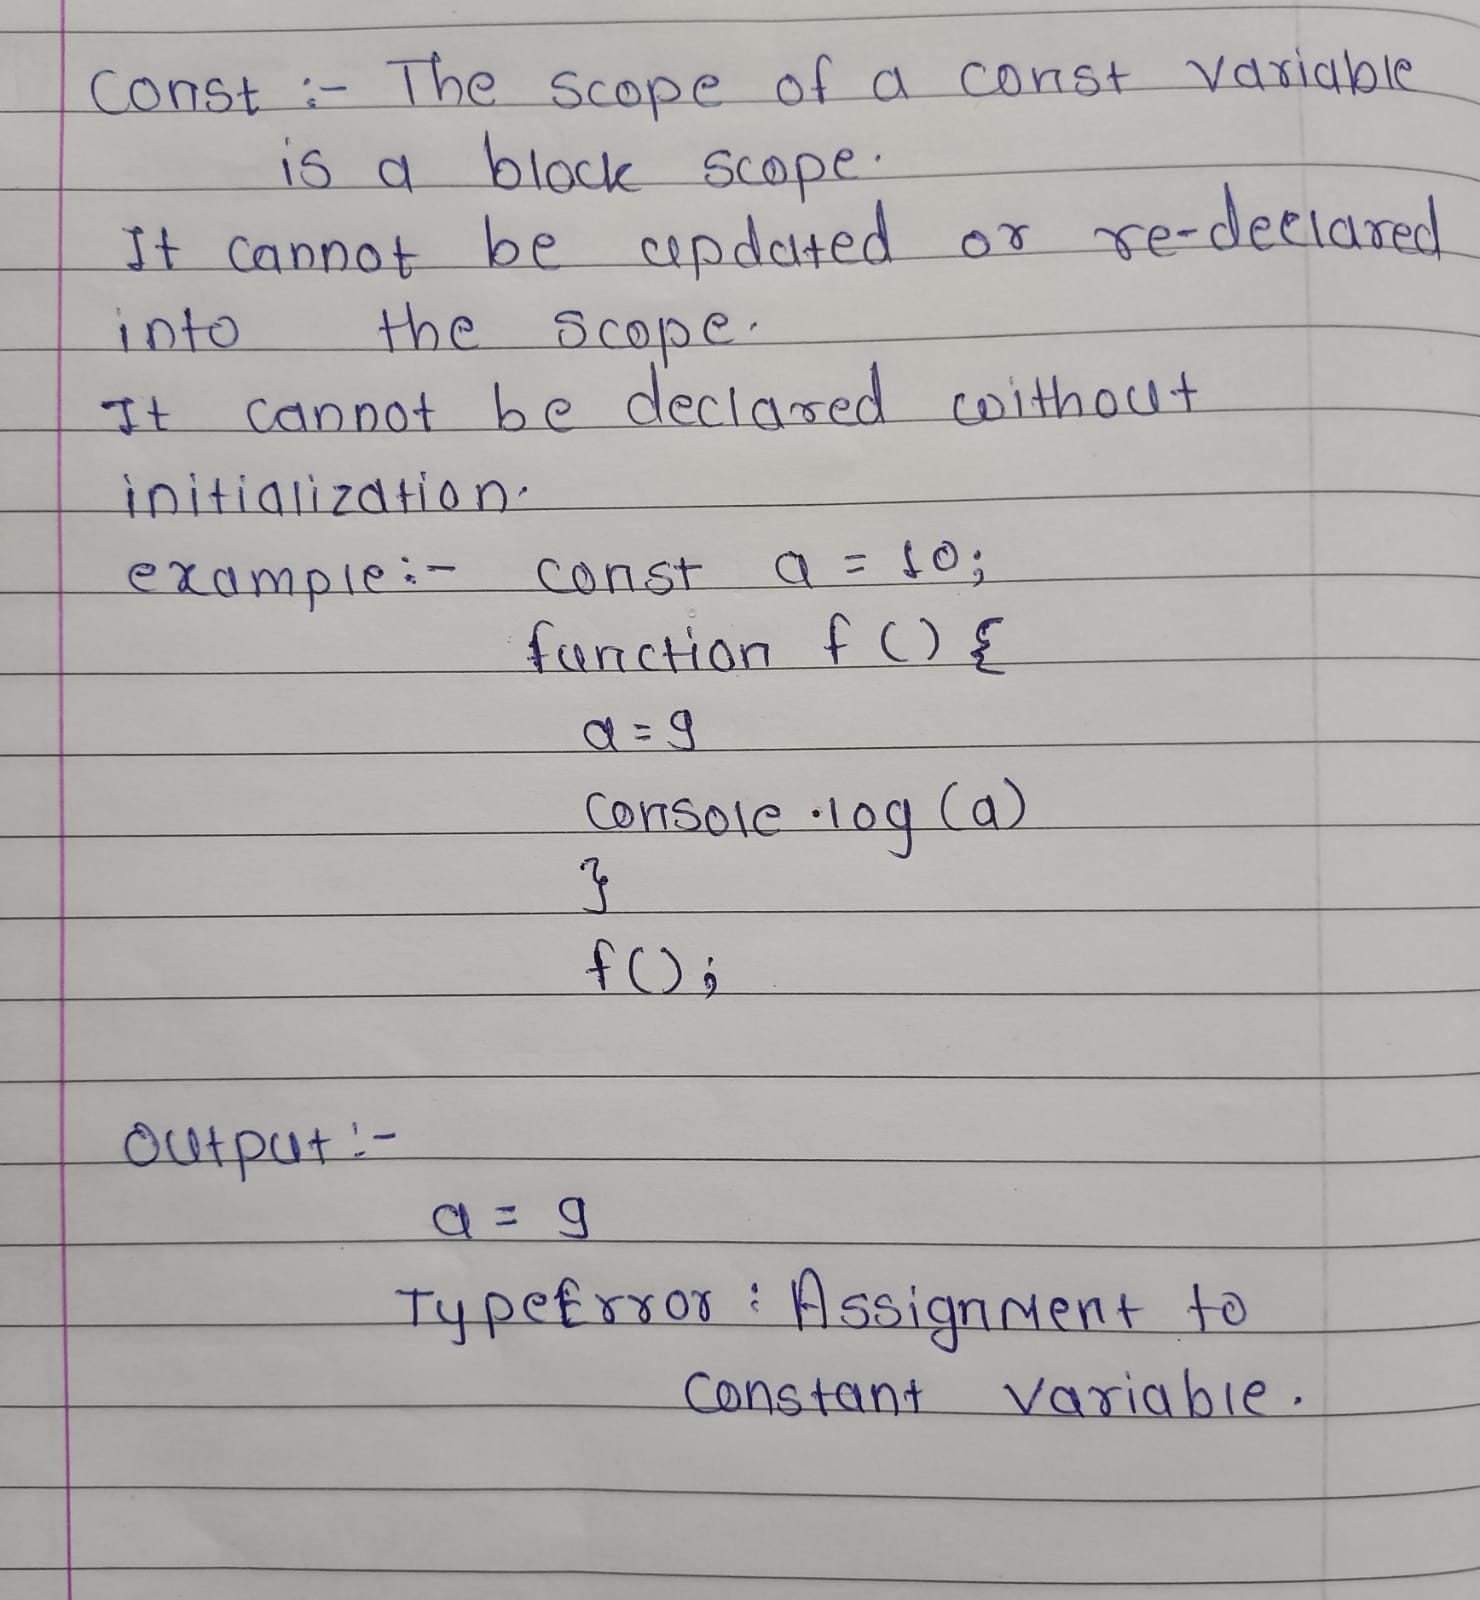 Const :- The scope of a const variable
is a block scope.
It cannot be updated or re-declared
into the scope.
It cannot be declared without
initialization.
example:- const a = 10;
function f () {
a = 9
console.log (a)
}
f();
Output :-
a = 9
TypeError : Assignment to
constant variable.